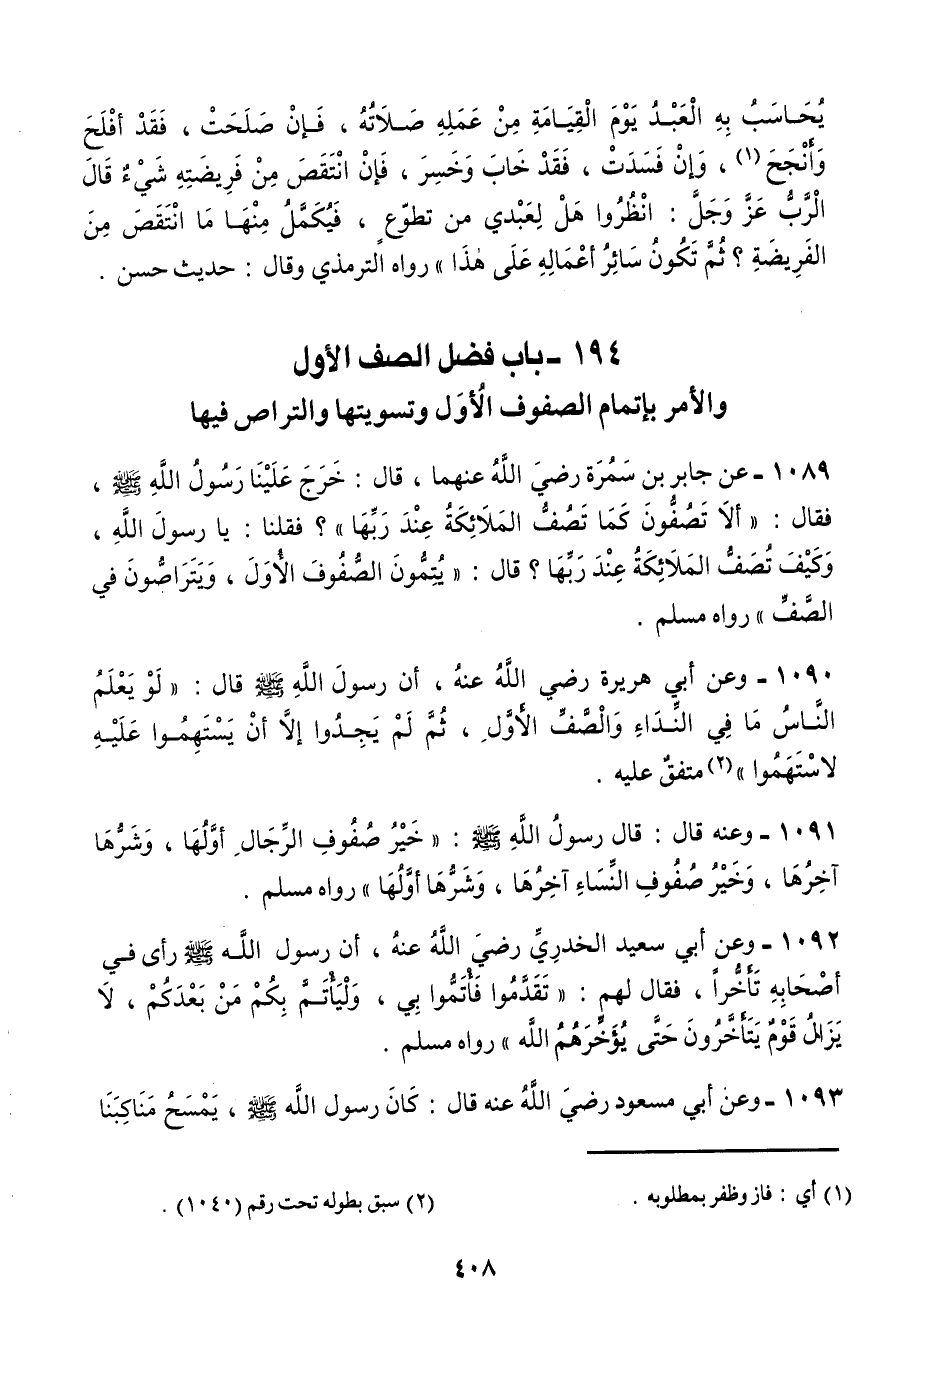 يُحَاسَبُ بِهِ الْعَبْدُ يَوْمَ الْقِيَامَةِ مِنْ عَمَلِهِ صَلَاتُهُ ، فَإِنْ صَلَحَتْ ، فَقَدْ أَفْلَحَ
وَأَنْجَحَ (١) ، وَإِنْ فَسَدَتْ ، فَقَدْ خَابَ وَخَسِرَ ، فَإِنْ انْتَقَصَ مِنْ فَرِيضَتِهِ شَيْءٌ قَالَ
الْرَّبُّ عَزَّ وَجَلَّ : انْظُرُوا هَلْ لِعَبْدي من تطوّعٍ ، فَيُكَمَّلُ مِنْهَا مَا انْتَقَصَ مِنَ
الفَرِيضَةِ ؟ ثُمَّ تَكُونُ سَائِرُ أَعْمَالِهِ عَلَى هٰذَا » رواه الترمذي وقال : حديث حسن .
١٩٤ - باب فضل الصف الأول
والأمر بإتمام الصفوف الُأوَل وتسويتها والتراص فيها
١٠٨٩ - عن جابر بن سَمُرَة رضيَ اللَّهُ عنهما ، قال : خَرَجَ عَلَيْنَا رَسُولُ اللَّهِ ﷺ ،
فقال : « أَلَا تَصُفُّونَ كَمَا تَصُفُّ المَلَائِكَةُ عِنْدَ رَبِّهَا » ؟ فقلنا : يا رسولَ اللَّهِ ،
وَكَيْفَ تُصَفُّ المَلَائِكَةُ عِنْدَ رَبِّهَا ؟ قال : « يُتِمُّونَ الصُّفُوفَ الُأوَلَ ، وَيَتَرَاصُّونَ في
الصَّفِّ » رواه مسلم .
١٠٩٠ - وعن أبي هريرة رضي اللَّهُ عنهُ ، أن رسولَ اللَّهِ ﷺ قال : « لَوْ يَعْلَمُ
النَّاسُ مَا فِي النِّدَاءِ وَالْصَّفِّ الأَوَّلِ ، ثُمَّ لَمْ يَجِدُوا إلَّا أَنْ يَسْتَهِمُوا عَلَيْهِ
لاسْتَهَمُوا »(٢) متفقٌ عليه .
١٠٩١ - وعنه قال : قال رسولُ اللَّهِ ﷺ : « خَيْرُ صُفُوفِ الرِّجَالِ أوَّلُهَا ، وَشَرُّهَا
آخِرُهَا ، وَخَيْرُ صُفُوفِ النِّسَاءِ آخِرُهَا ، وَشَرُّهَا أَوَّلُهَا » رواه مسلم .
١٠٩٢ - وعن أبي سعيد الخدرِيِّ رضيَ اللَّهُ عنهُ ، أن رسول اللَّه ﷺ رأى في
أَصْحَابِهِ تَأَخُّراً ، فقال لهم : « تَقَدَّمُوا فَأْتَمُّوا بِي ، وَلْيَأْتَمَّ بِكُمْ مَنْ بَعْدَكُمْ ، لَا
يَزَالُ قَوْمٌ يَتَأَخَّرُونَ حَتَّى يُؤَخِّرَهُمُ اللَّه » رواه مسلم .
١٠٩٣ - وعن أبي مسعود رضيَ اللَّهُ عنه قال : كَانَ رسول اللَّه ﷺ ، يَمْسَحُ مَنَاكِبَنَا
(١) أي : فاز وظفر بمطلوبه .
(٢) سبق بطوله تحت رقم (١٠٤٠) .
٤٠٨